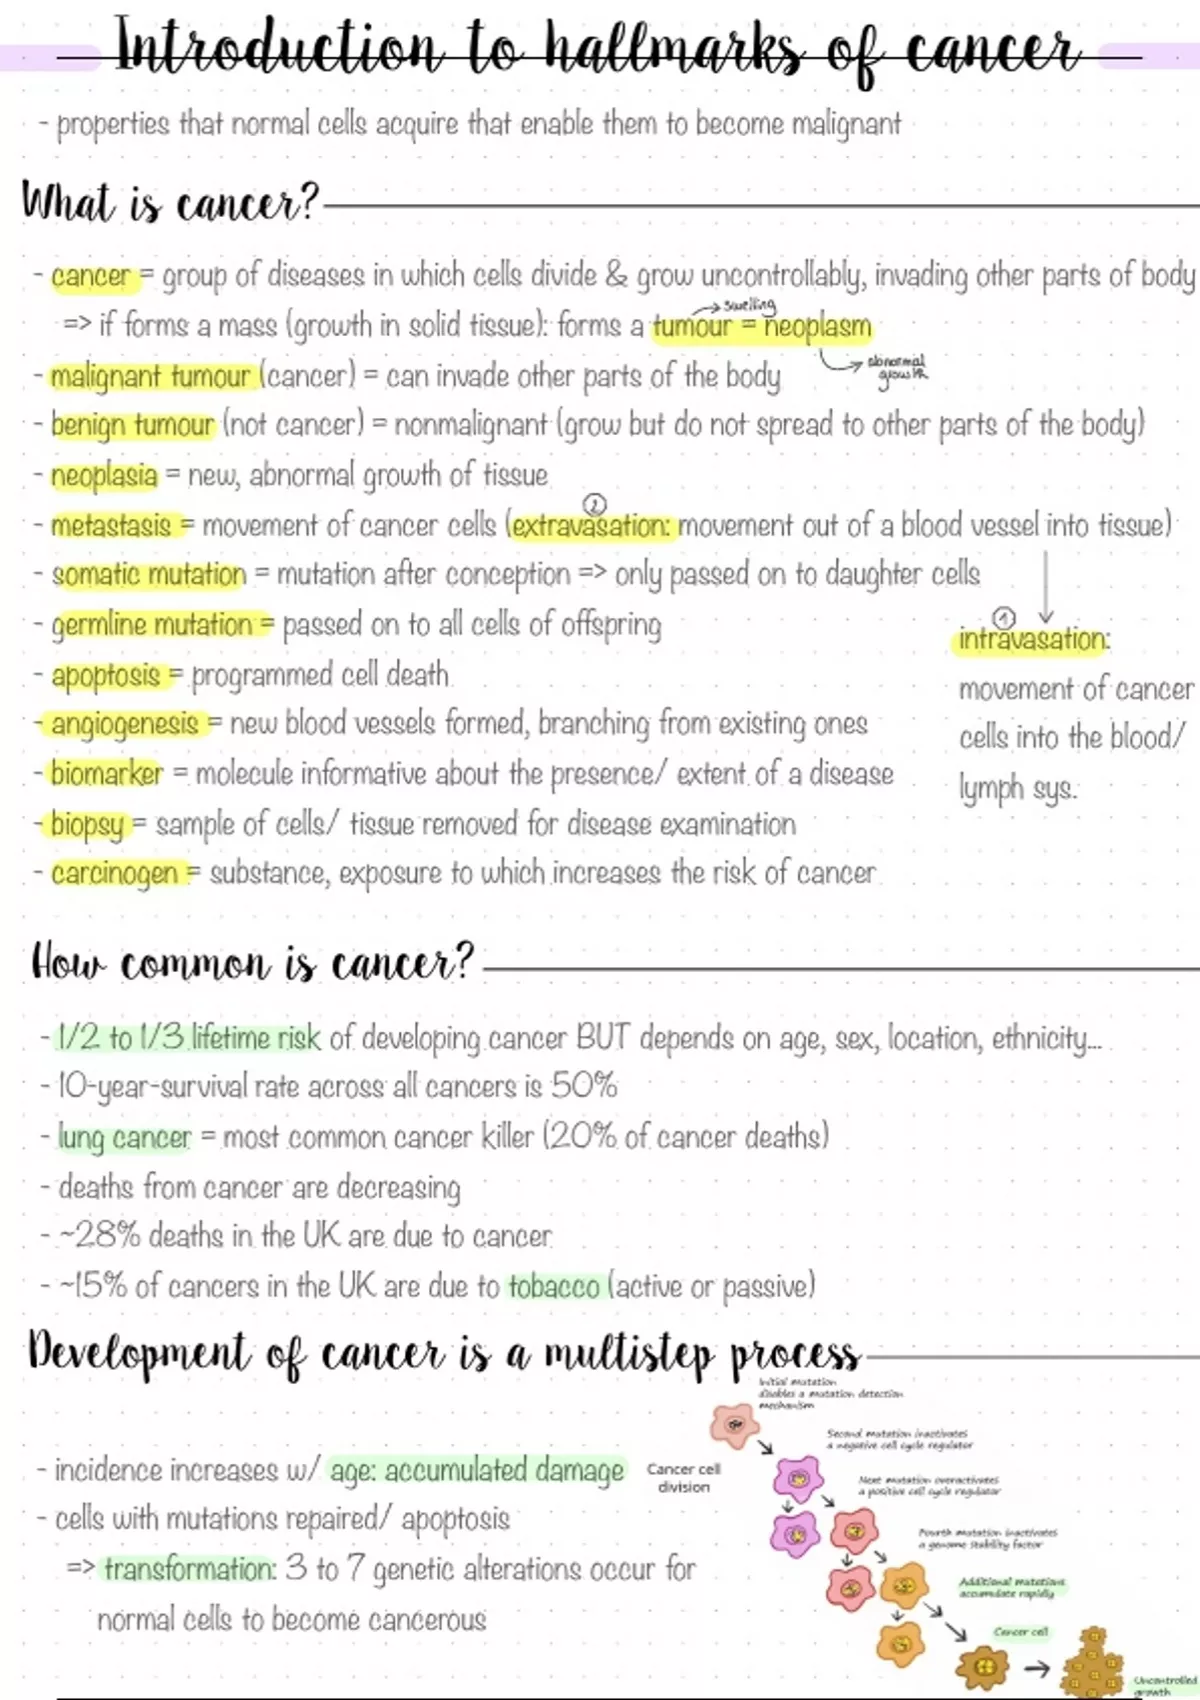 Introduction to hallmarks of cancer
- properties that normal cells acquire that enable them to become malignant
What is cancer?
- cancer = group of diseases in which cells divide & grow uncontrollably, invading other parts of body
=> if forms a mass (growth in solid tissue): forms a tumour = neoplasm
→ swelling
→ abnormal growth
- malignant tumour (cancer) = can invade other parts of the body
- benign tumour (not cancer) = nonmalignant (grow but do not spread to other parts of the body)
- neoplasia = new, abnormal growth of tissue
②
- metastasis = movement of cancer cells (extravasation: movement out of a blood vessel into tissue)
- somatic mutation = mutation after conception => only passed on to daughter cells
- germline mutation = passed on to all cells of offspring
- apoptosis = programmed cell death
- angiogenesis = new blood vessels formed, branching from existing ones
- biomarker = molecule informative about the presence/ extent of a disease
- biopsy = sample of cells/ tissue removed for disease examination
- carcinogen = substance, exposure to which increases the risk of cancer
①
intravasation:
movement of cancer
cells into the blood/
lymph sys.
How common is cancer?
- 1/2 to 1/3 lifetime risk of developing cancer BUT depends on age, sex, location, ethnicity...
- 10-year-survival rate across all cancers is 50%
- lung cancer = most common cancer killer (20% of cancer deaths)
- deaths from cancer are decreasing
- ~28% deaths in the UK are due to cancer
- ~15% of cancers in the UK are due to tobacco (active or passive)
Development of cancer is a multistep process
- incidence increases w/ age: accumulated damage
- cells with mutations repaired/ apoptosis
=> transformation: 3 to 7 genetic alterations occur for
normal cells to become cancerous
Initial mutation
disables a mutation detection
mechanism
Second mutation inactivates
a negative cell cycle regulator
Cancer cell
division
Next mutation overactivates
a positive cell cycle regulator
Fourth mutation inactivates
a genome stability factor
Additional mutations
accumulate rapidly
Cancer cell
Uncontrolled
growth